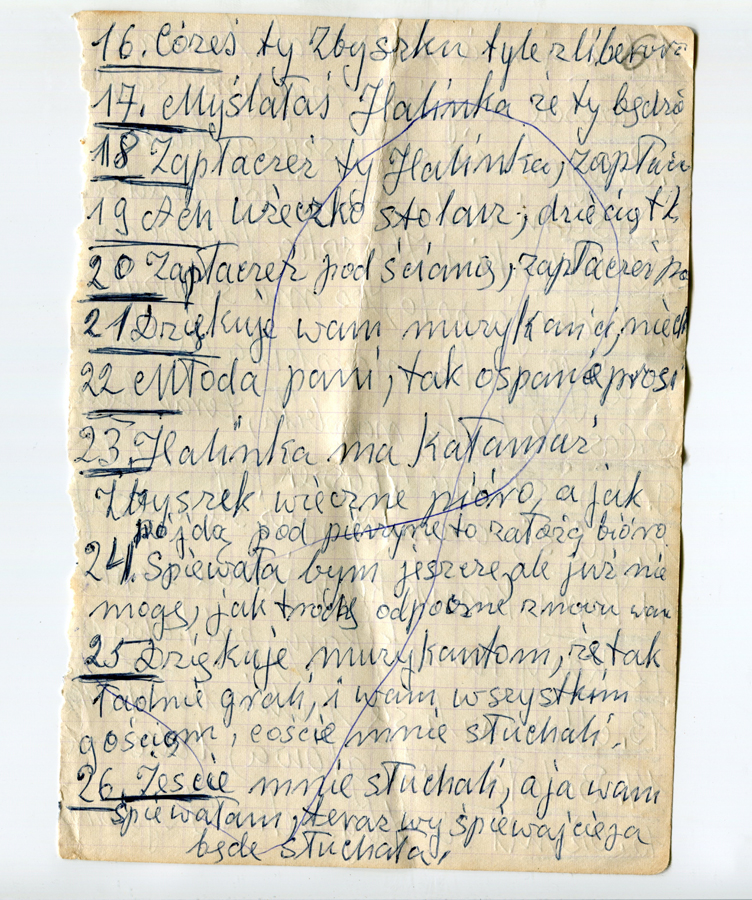 16. Cóześ ty Zbyszku tyle zliberow
17. Myślałaś Halinka że ty będzie
18 Zapłaczeż ty Halinka, zapłacz
19 Ach wieczko stolarz, dzieciąt
20 Zapłaczeż pod ścianą, zapłaczeż po
21 Dziękuje wam muzykańci, niech
22 Młoda pani, tak ospane prosi
23. Halinka ma kałamaż
Zbyszek wieczne pióro, a jak
pójdą pod pierzyne to założą bióro
24. Śpiewała bym jeszcze, ale już nie
mogę, jak trochę odpoczne znowu wam
25 Dziękuje muzykantom, że tak
ładnie grali, i wam wszystkim
gościom, coście mnie słuchali.
26. Żeście mnie słuchali, a ja wam
śpiewałam, teraz wy śpiewajcie ja
będe słuchała.